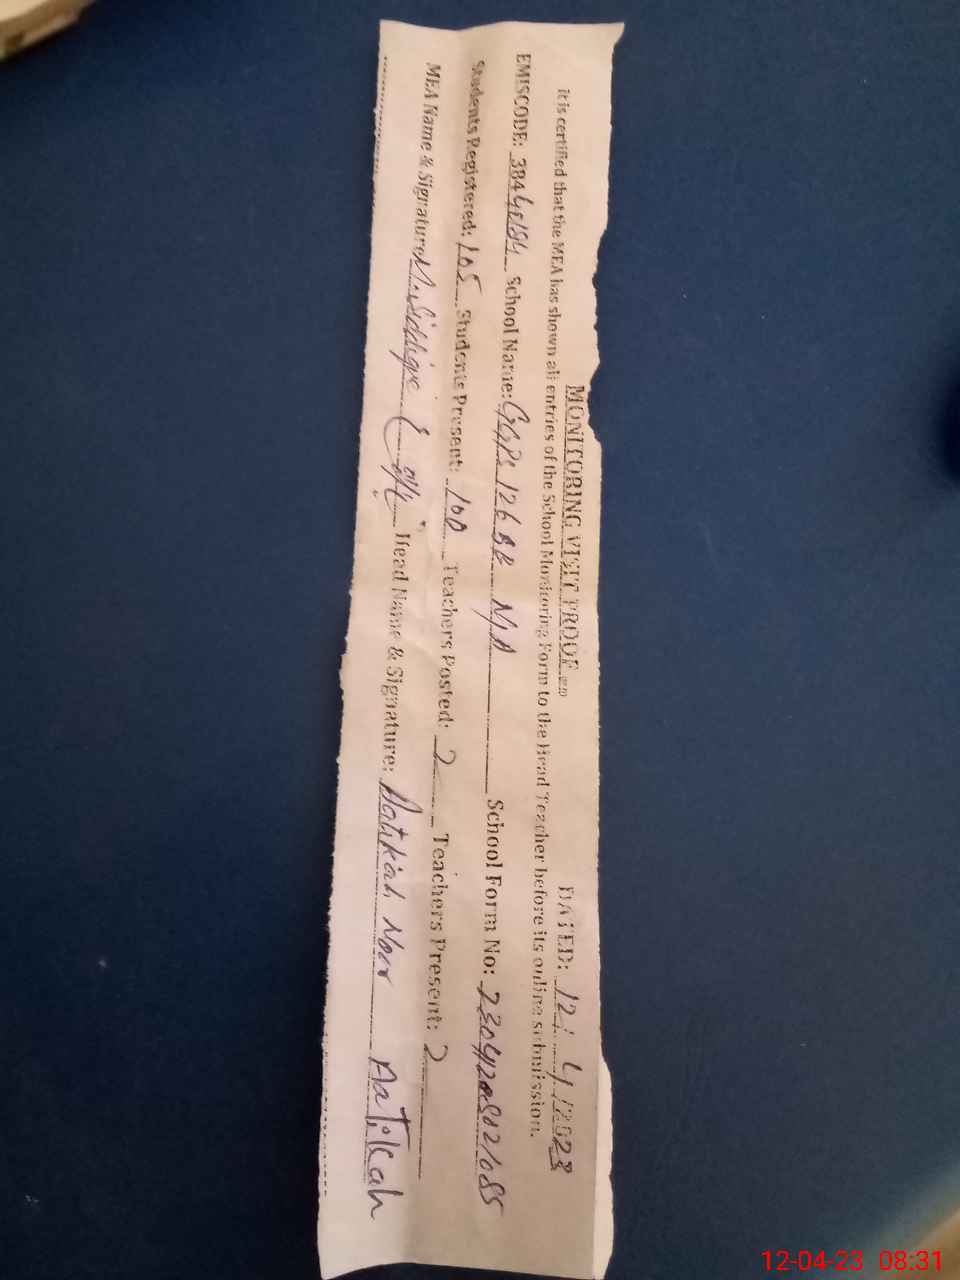 MONITORING VISIT PROOF DATED: 12/4/2023
it is certified that the MEA has shown all entries of the School Monitoring Form to the Head Teacher before its online submission.
EMISCODE: School Name: GGPS 126 SB N/A School Form No:
Students Registered: 105 Students Present: 100 Teachers Posted: 2 Teachers Present: 2
MEA Name & Signature: M. Siddique Head Name & Signature: Aatikah Noor Aatikah
12-04-23 08:31